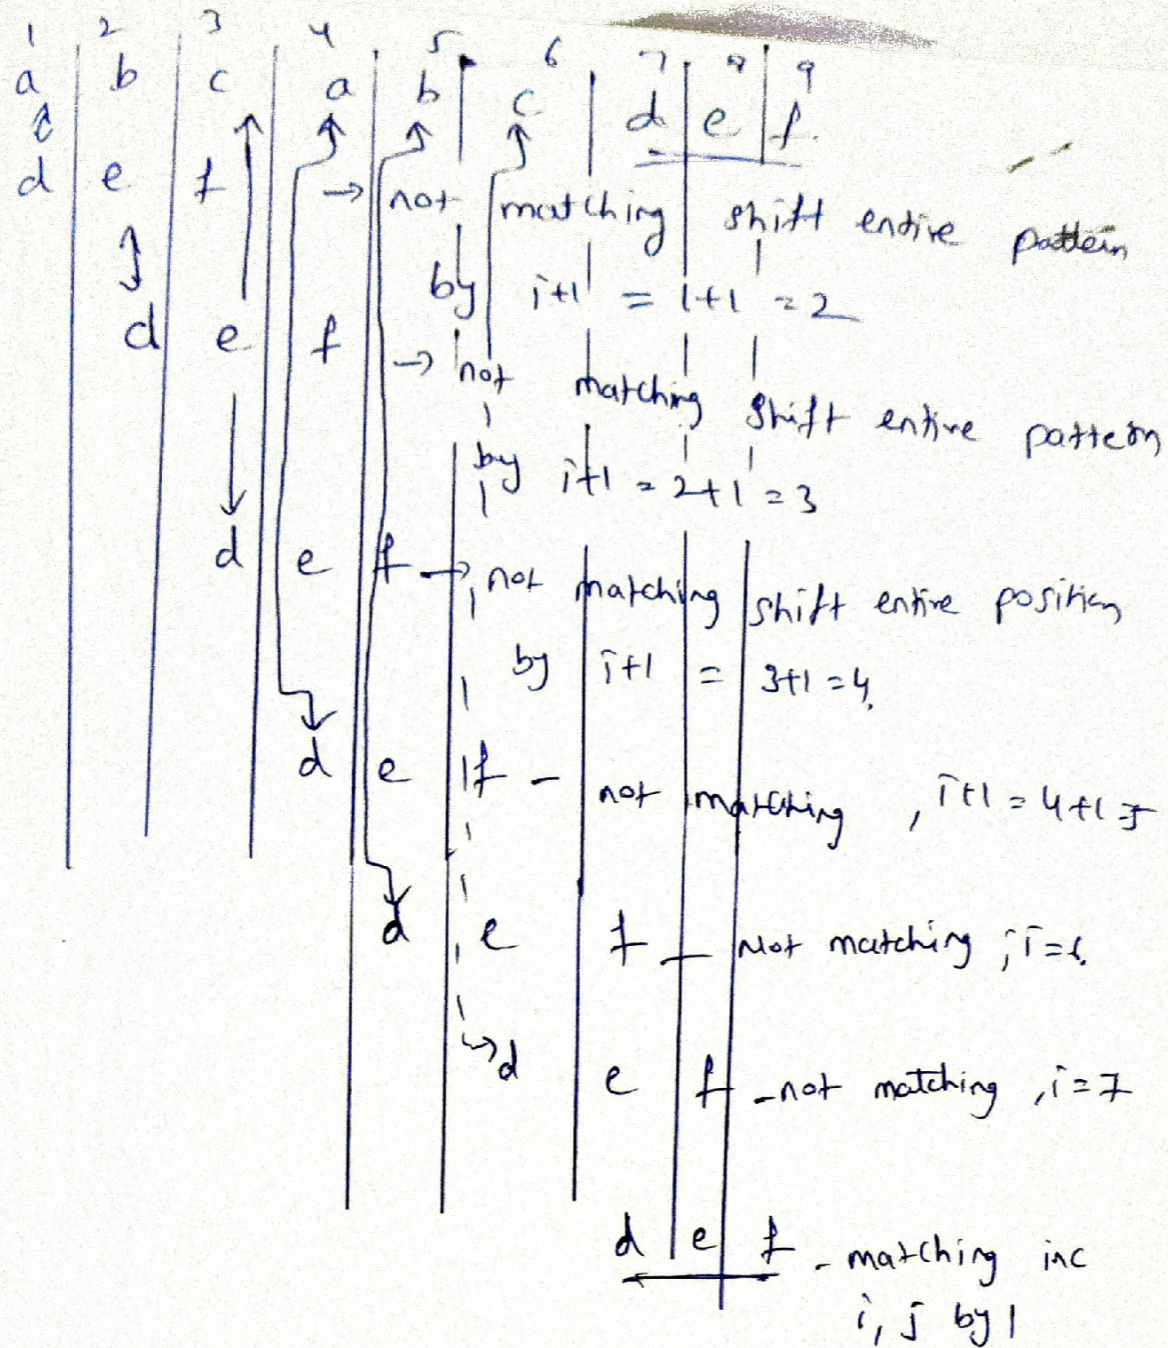 1 2 3 4 5 6 7 8 9
a b c a b c d e f.
d e f → not matching shift entire pattern
by i+1 = 1+1 = 2
d e f → not matching shift entire pattern
by i+1 = 2+1 = 3
d e f → not matching shift entire position
by i+1 = 3+1 = 4.
d e f - not matching, i+1 = 4+1=5
d e f - Not matching ; i=6.
d e f - not matching, i=7
d e f - matching inc
i, j by 1